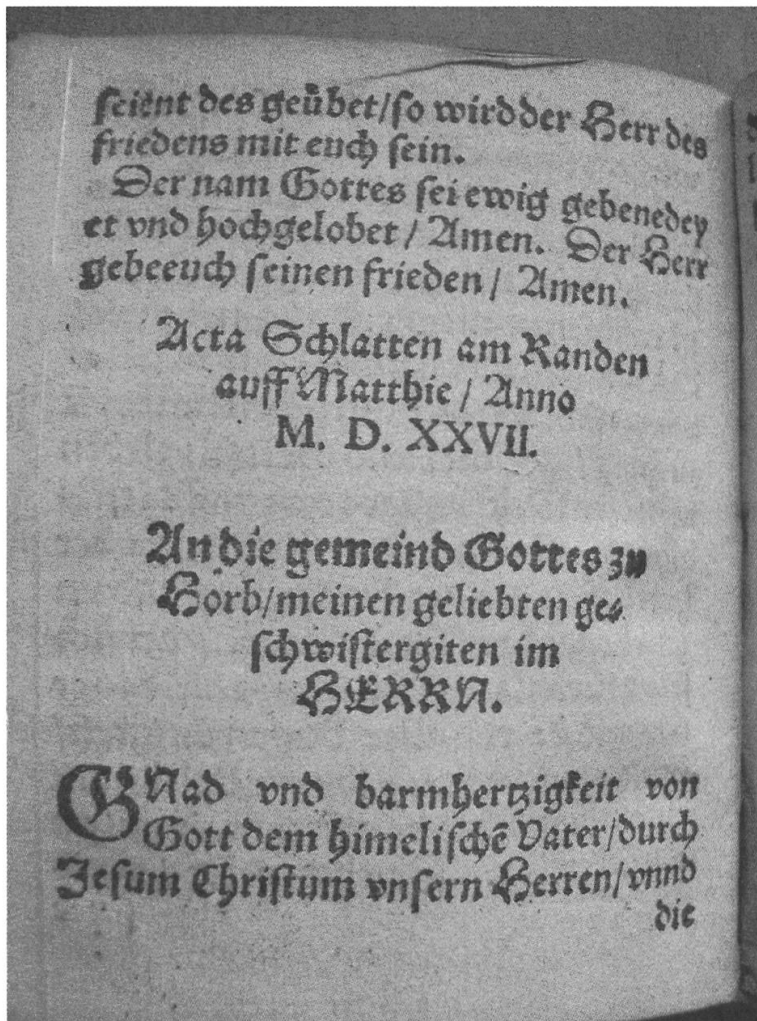 seient des geübet/so wird der Herr des
friedens mit euch sein.
Der nam Gottes sei ewig gebenedey
et vnd hochgelobet / Amen. Der Herr
gebe euch seinen frieden / Amen.
Acta Schlatten am Randen
auff Matthie / Anno
M. D. XXVII.
An die gemeind Gottes zu
Horb/meinen geliebten ge⸗
schwistergiten im
HERRN.
GNad vnd barmhertzigkeit von
Gott dem himelischē Vater/durch
Jesum Christum vnsern Herren/vnnd
die